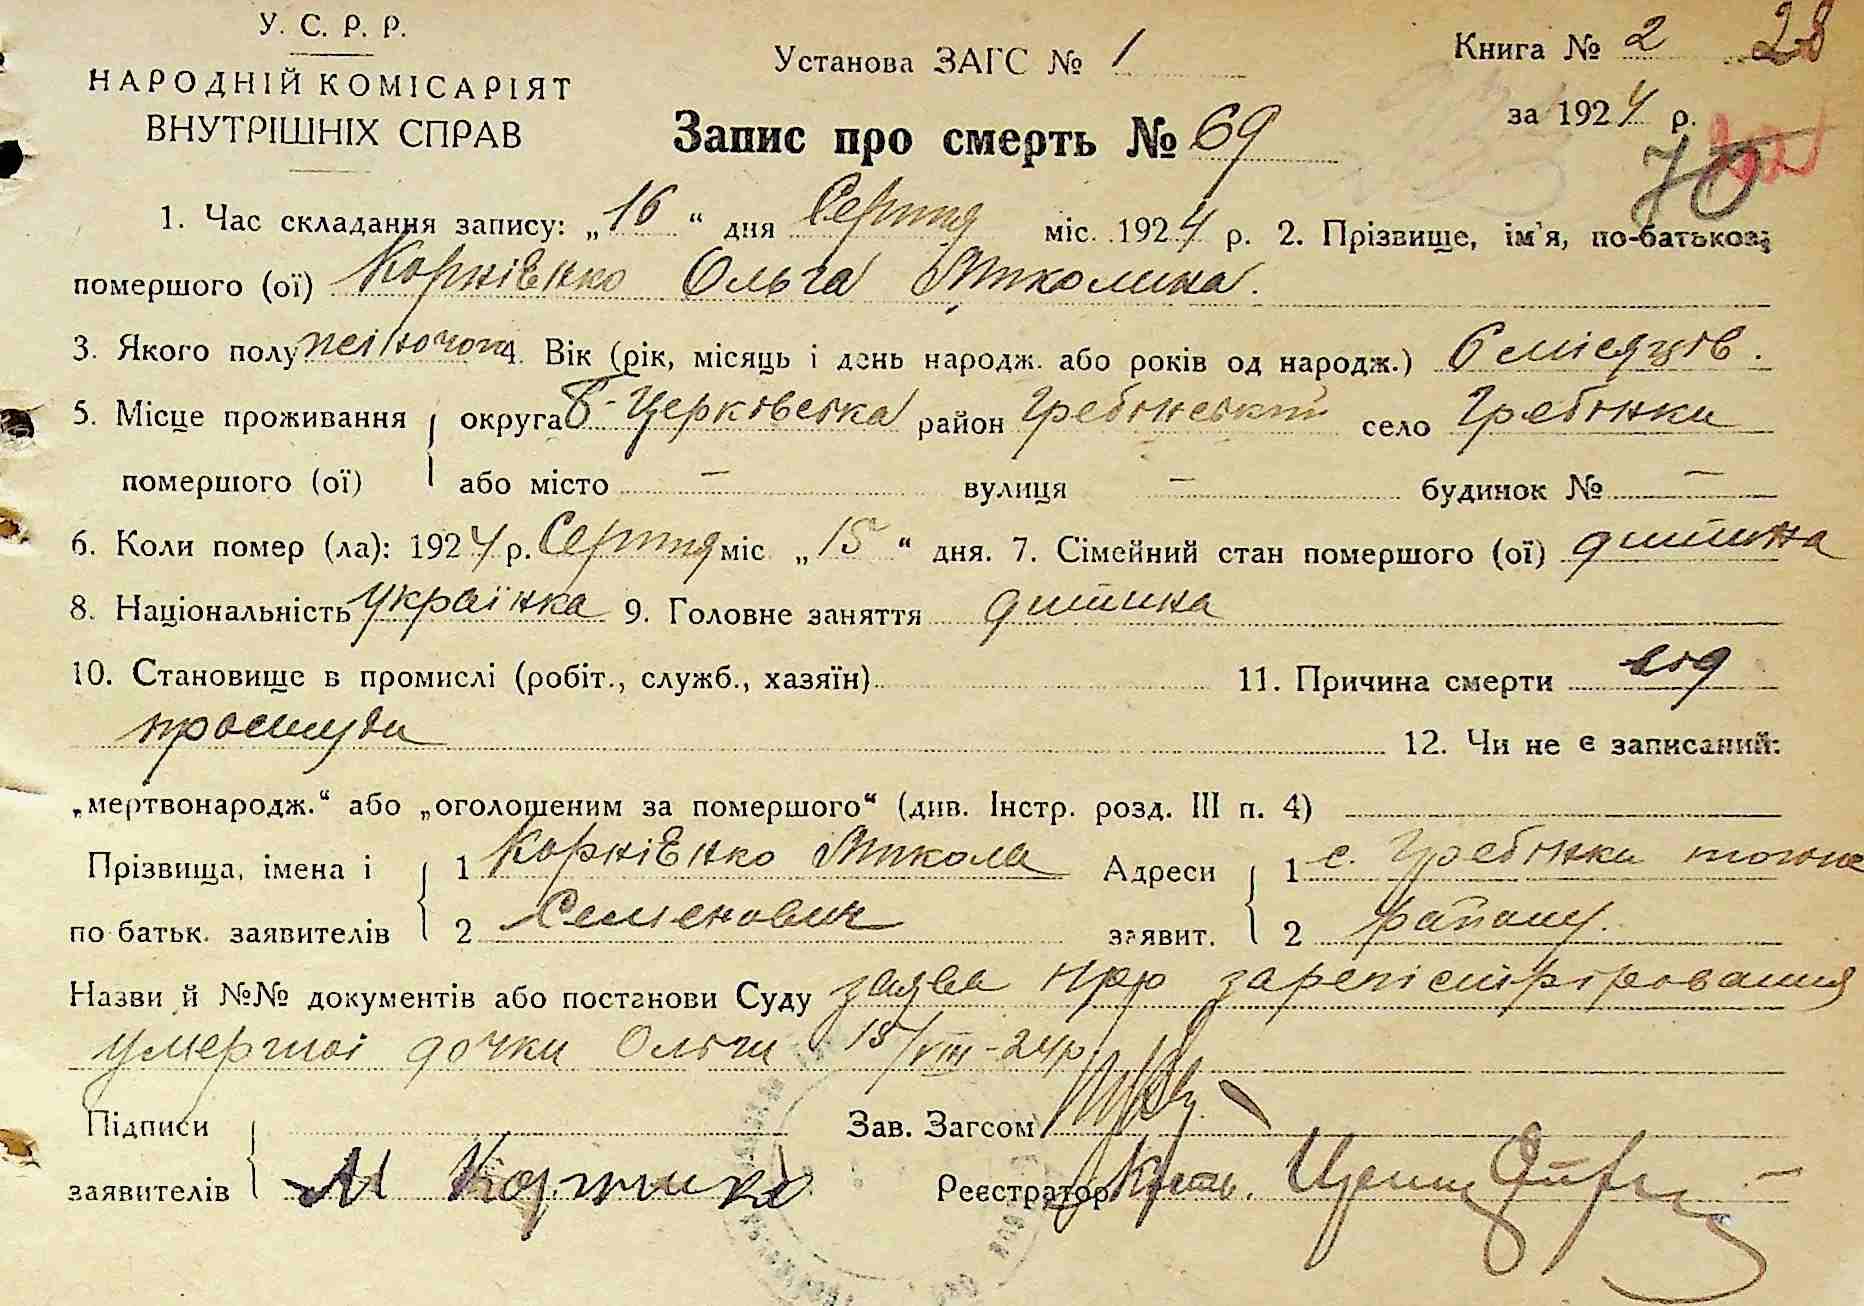 У. С. Р. Р.
НАРОДНІЙ КОМІСАРІЯТ
ВНУТРІШНІХ СПРАВ
Установа ЗАГС № 1
Книга № 2 28
за 1924 р.
Запис про смерть № 69
70
1. Час складання запису: „16“ дня Серпня міс. 1924 р. 2. Прізвище, ім'я, по-батькові
помершого (ої) Корнієнко Ольга Миколина.
3. Якого полу жіночого 4. Вік (рік, місяць і день народж. або років од народж.) 6 місяців.
5. Місце проживання округа Б-Церківська район Гребінський село Гребінки
помершого (ої) або місто — вулиця — будинок № —
6. Коли помер (ла): 1924 р. Серпня міс „15“ дня. 7. Сімейний стан помершого (ої) дитина
8. Національність українка 9. Головне заняття дитина
10. Становище в промислі (робіт., служб., хазяїн) 11. Причина смерти від
простуди 12. Чи не є записаний:
„мертвонародж.“ або „оголошеним за помершого“ (див. Інстр. розд. III п. 4)
Прізвища, імена і 1 Корнієнко Микола Адреси 1 с. Гребінки того же
по батьк. заявителів 2 Семенович заявит. 2 району.
Назви й №№ документів або постанови Суду заява про
умершої дочки Ольги 15/VIII-24р.
Підписи Зав. Загсом
заявителів М Корниенко Реєстратор